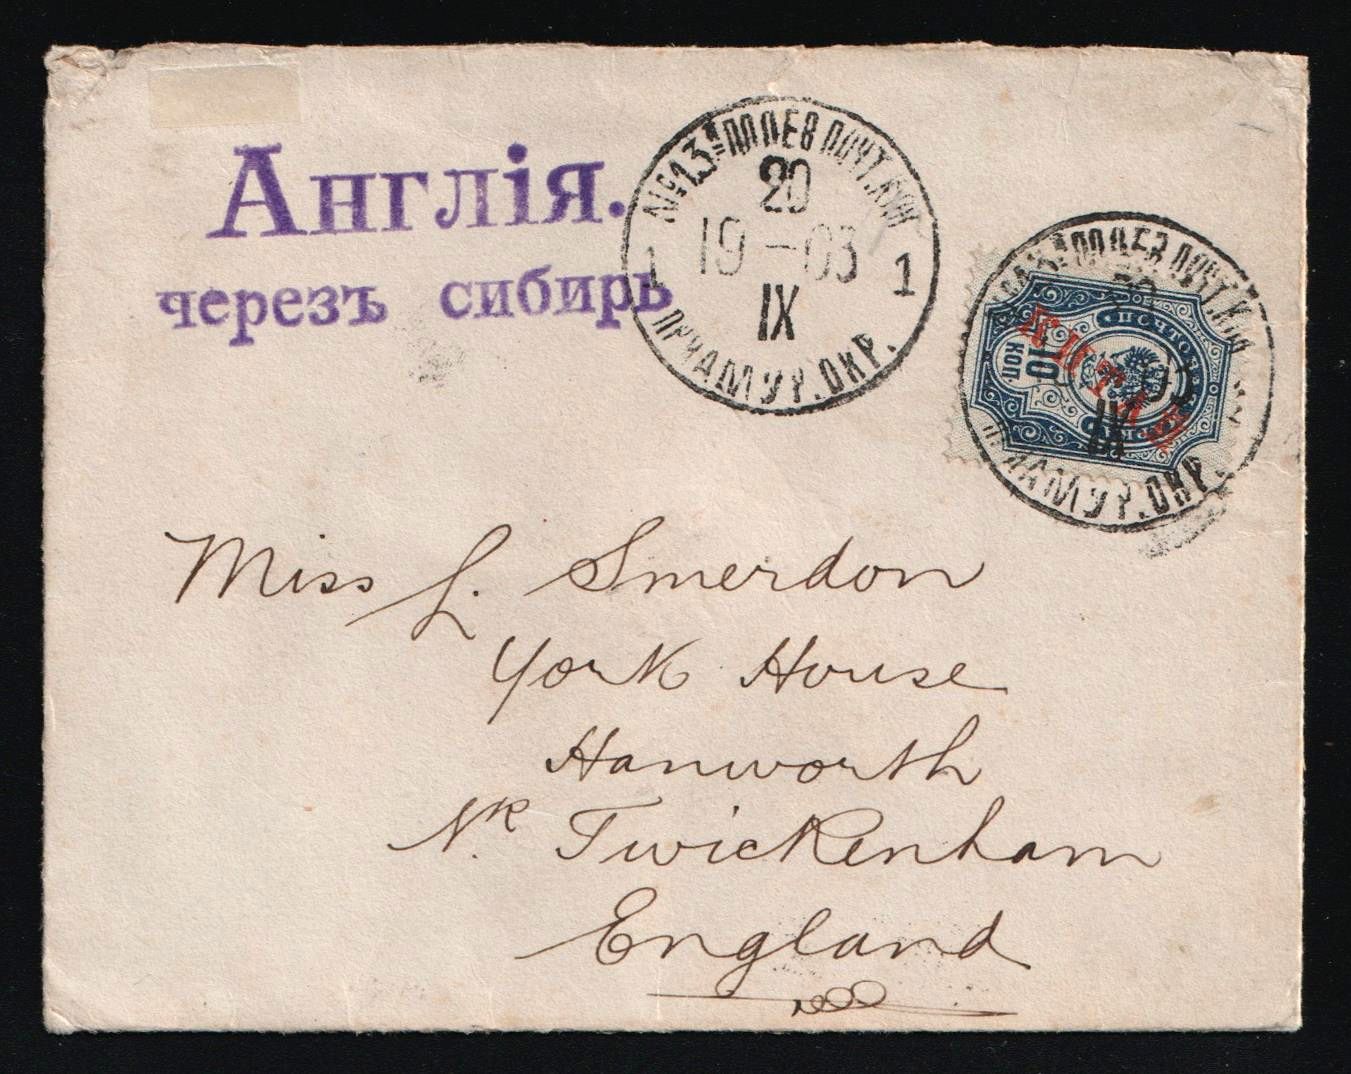 Англія.
черезъ сибирь
№13 ПОЛЕВ ПОЧТ.
20
19-03
IX
1 1
ПРИАМУР. ОКР.
ПОЛЕВ ПОЧТ.
ПОЧТОВ
КИТАЙ
10
КОП.
03
IX
ПРИАМУР. ОКР.
Miss L. Smerdon
York House
Hanworth
Nr. Twickenham
England